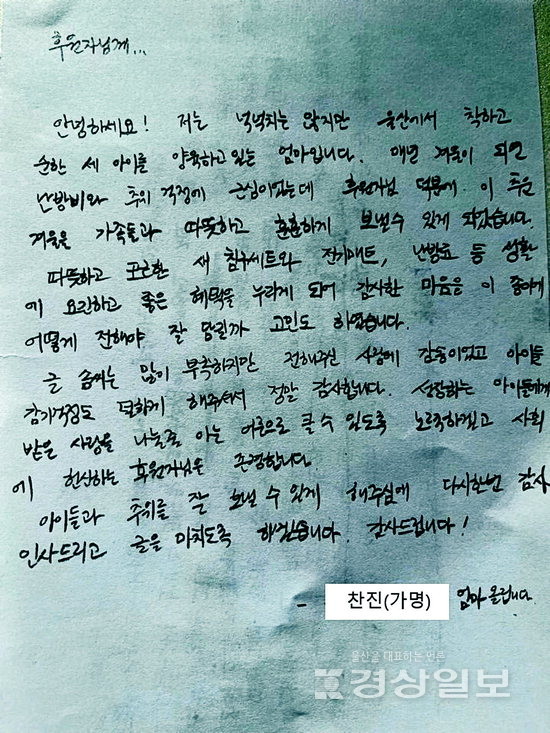 후원자님께...
안녕하세요! 저는 넉넉치는 않지만 울산에서 착하고
순한 세 아이를 양육하고 있는 엄마입니다. 매년 겨울이 되면
난방비와 추위 걱정에 근심이었는데 후원자님 덕분에 이 추운
겨울을 가족들과 따뜻하고 훈훈하게 보낼수 있게 되었습니다.
따뜻하고 포근한 새 침구세트와 전기매트, 난방료 등 생활
에 요긴하고 좋은 혜택을 누리게 되어 감사한 마음을 이 종이에
어떻게 전해야 잘 담길까 고민도 하였습니다.
글 솜씨는 많이 부족하지만 전해주신 사랑에 감동이었고 아이들
감기걱정도 덜하게 해주셔서 정말 감사합니다. 성장하는 아이들에게
받은 사랑을 나눌줄 아는 어른으로 클 수 있도록 노르족하겠고 사회
에 헌신하는 후원자님은 존경합니다.
아이들과 추위를 잘 보낼 수 있게 해주심에 다시한번 감사
인사드리고 글을 마치도록 하겠습니다. 감사드립니다!
- 찬진(가명) 엄마 올립니다.
울산을 대표하는 언론
경상일보